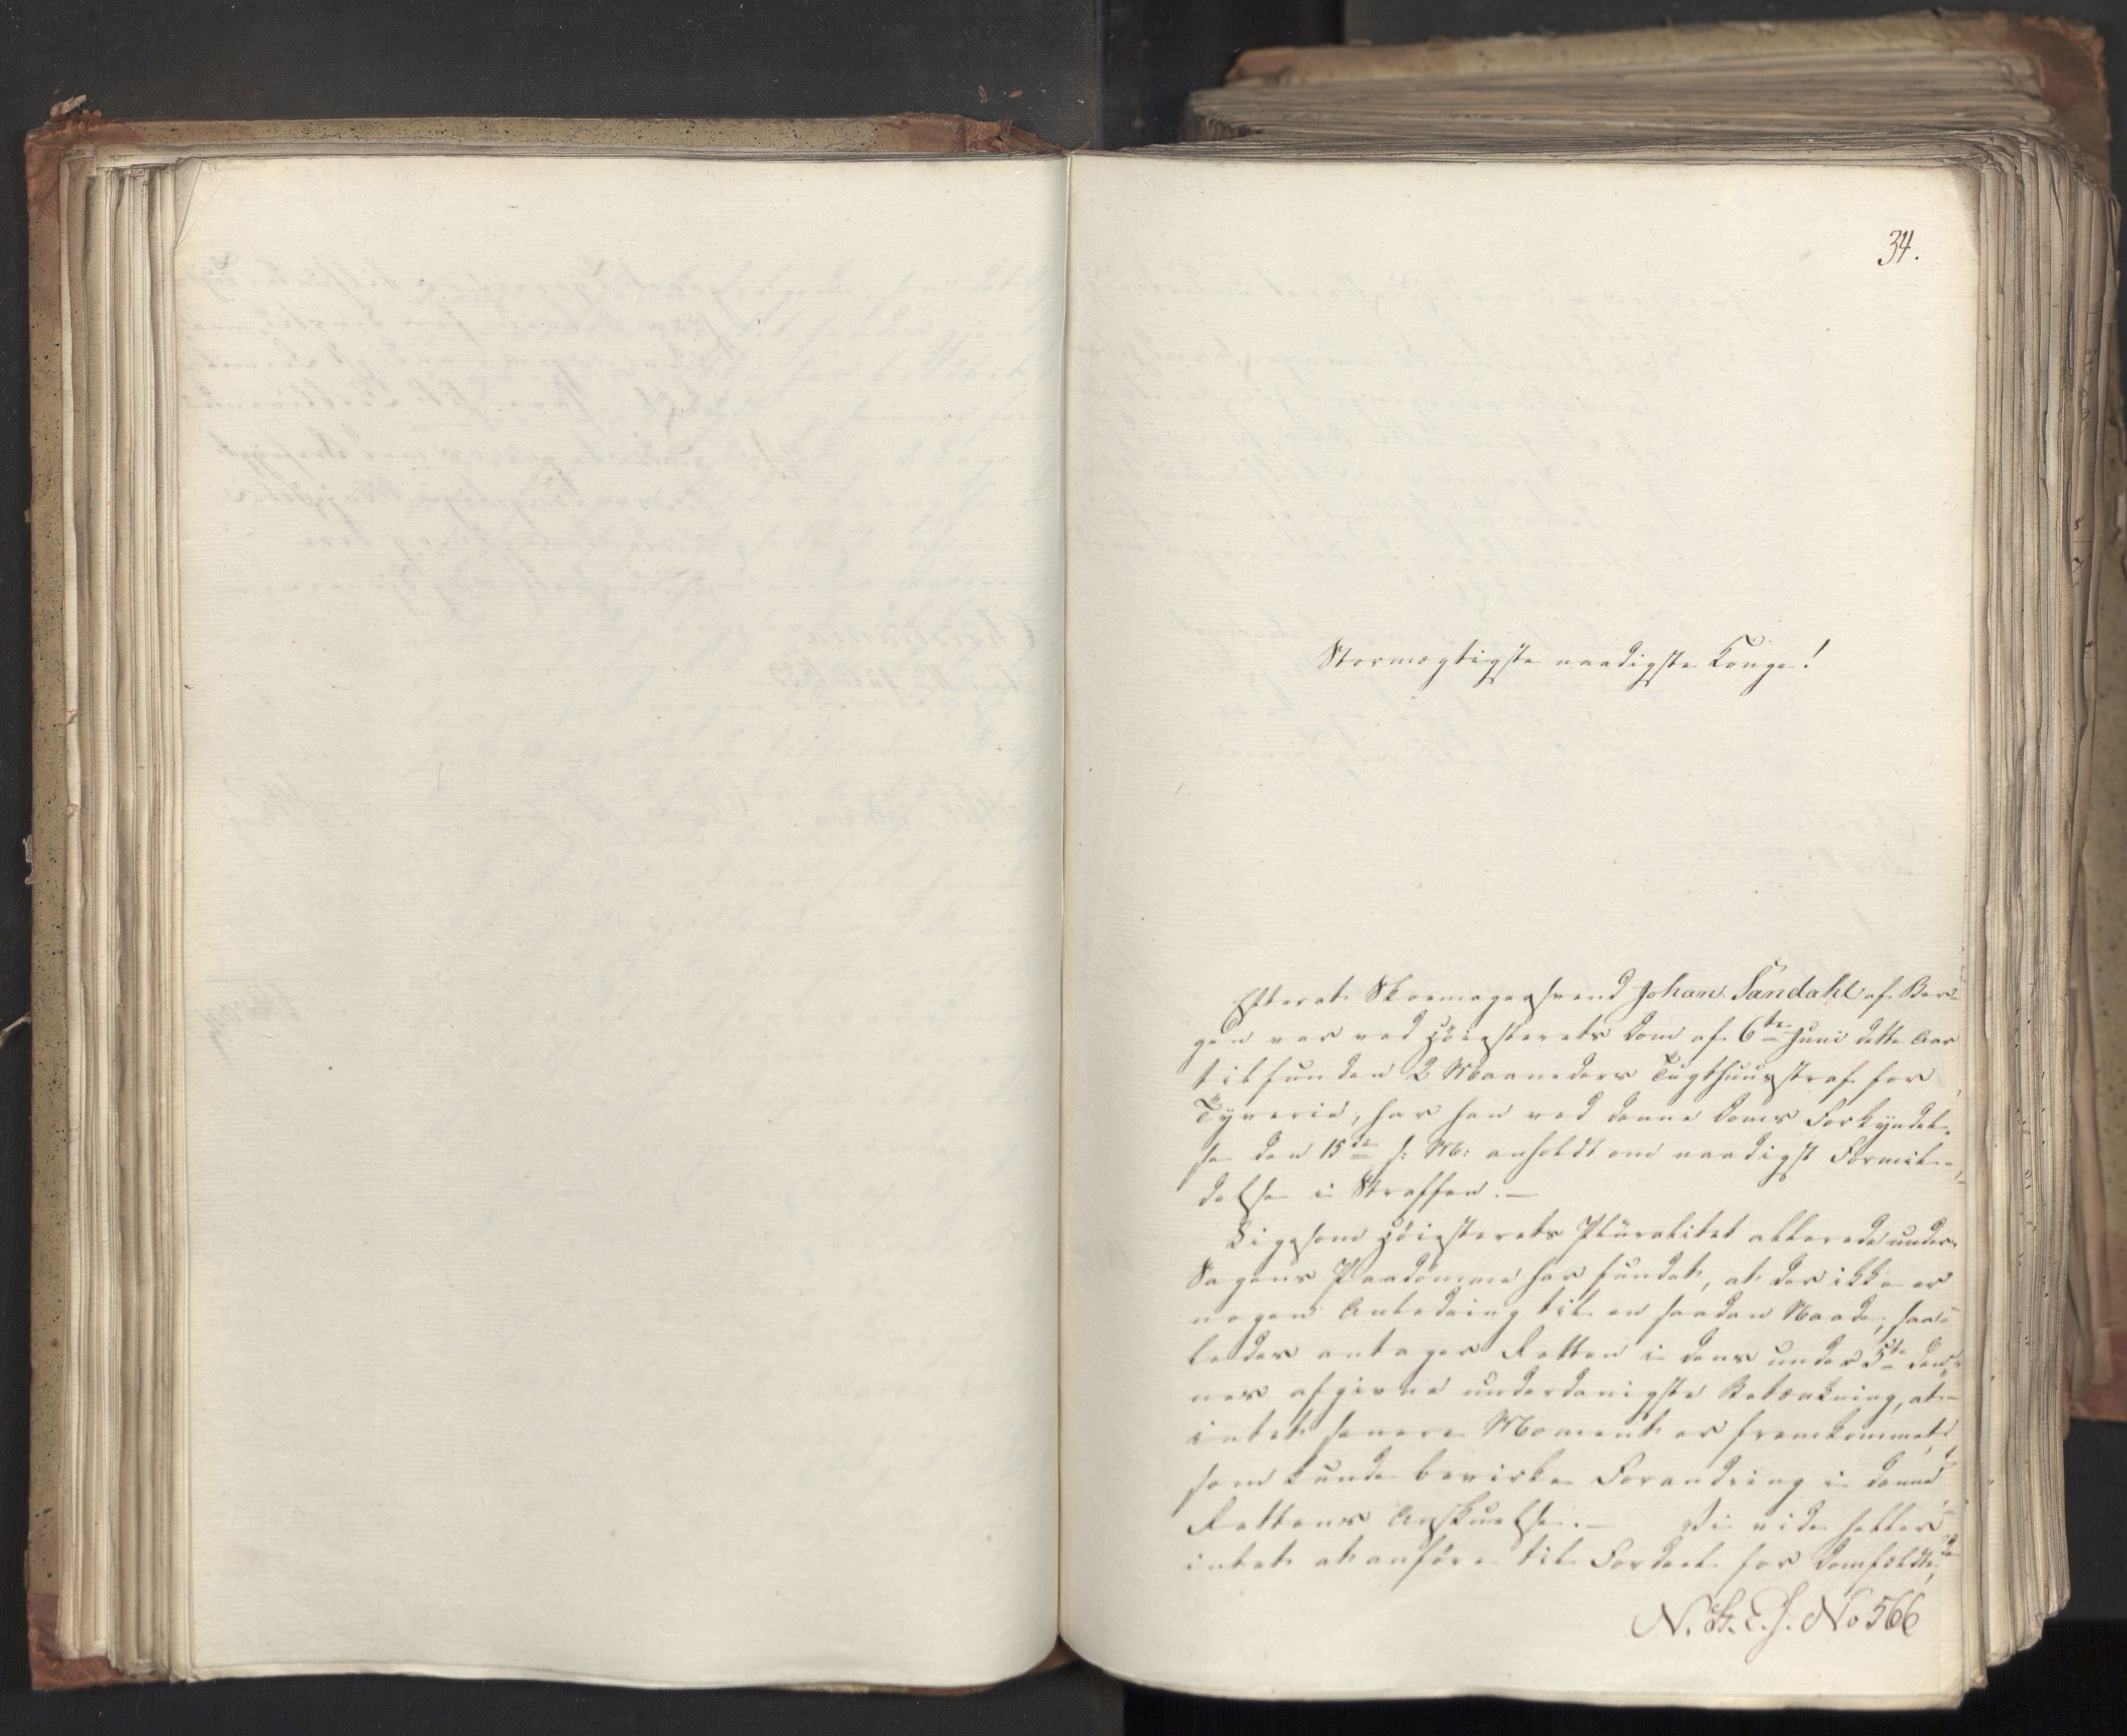 34.
Stormægtigste naadigste Konge!
Efterat Skoemagersvend Johan Sandahl af Ber-
gen var ved Høiesterets Dom af 6te Juni dette Aar
tilfunden 2 Maaneders Tugthuusstraf for
Tyverie, har han ved denne Doms Forkyndel-
se den 15de s: M: anholdt om naadigst Formil-
delse i Straffen.—
Ligesom Høiesterets Pluralitet allerede under
Sagens Paadømme har fundet, at der ikke er
nogen Anledning til en saadan Naade, saa-
ledes antager Retten i dens under 5te den-
nes afgivne underdanigste Betænkning, at
intet senere Moment er fremkommet,
som kunde bevirke Forandring i denne
Rettens Anskuelse.— Vi vide heller
intet at anføre til Fordeel for Domfældte,
N. St. E. J. No 566